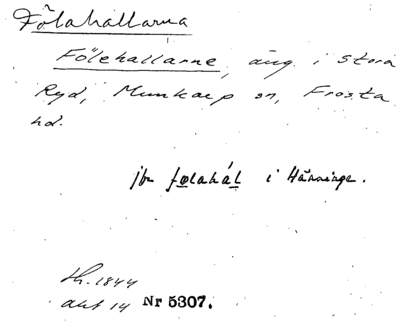 Fölahallarna
Fölehallarne, äng i Stora
Ryd, Munkarp sn, Frosta
hd.
jfr fölahál i Hänninge.
Lh. 1844
akt 14 Nr 5307.